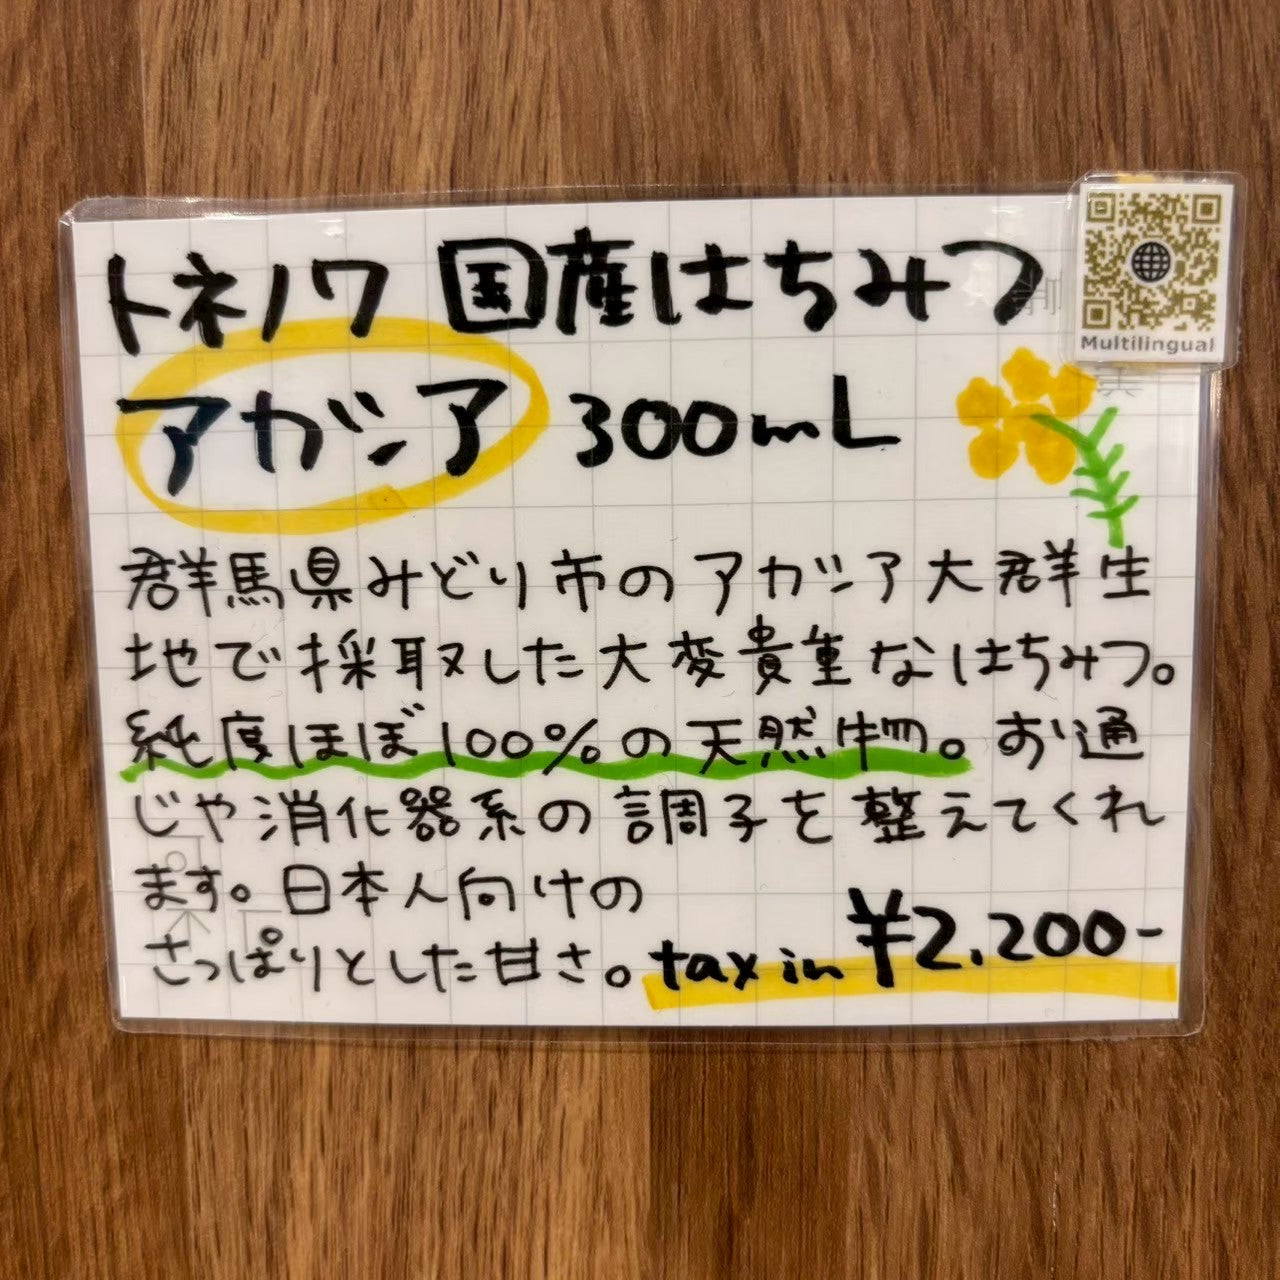 トネノワ 国産はちみつ
アカシア 300mL
群馬県みどり市のアカシア大群生
地で採取した大変貴重なはちみつ。
純度ほぼ100%の天然物。お通
じや消化器系の調子を整えてくれ
ます。日本人向けの
さっぱりとした甘さ。tax in ¥2,200-
Multilingual